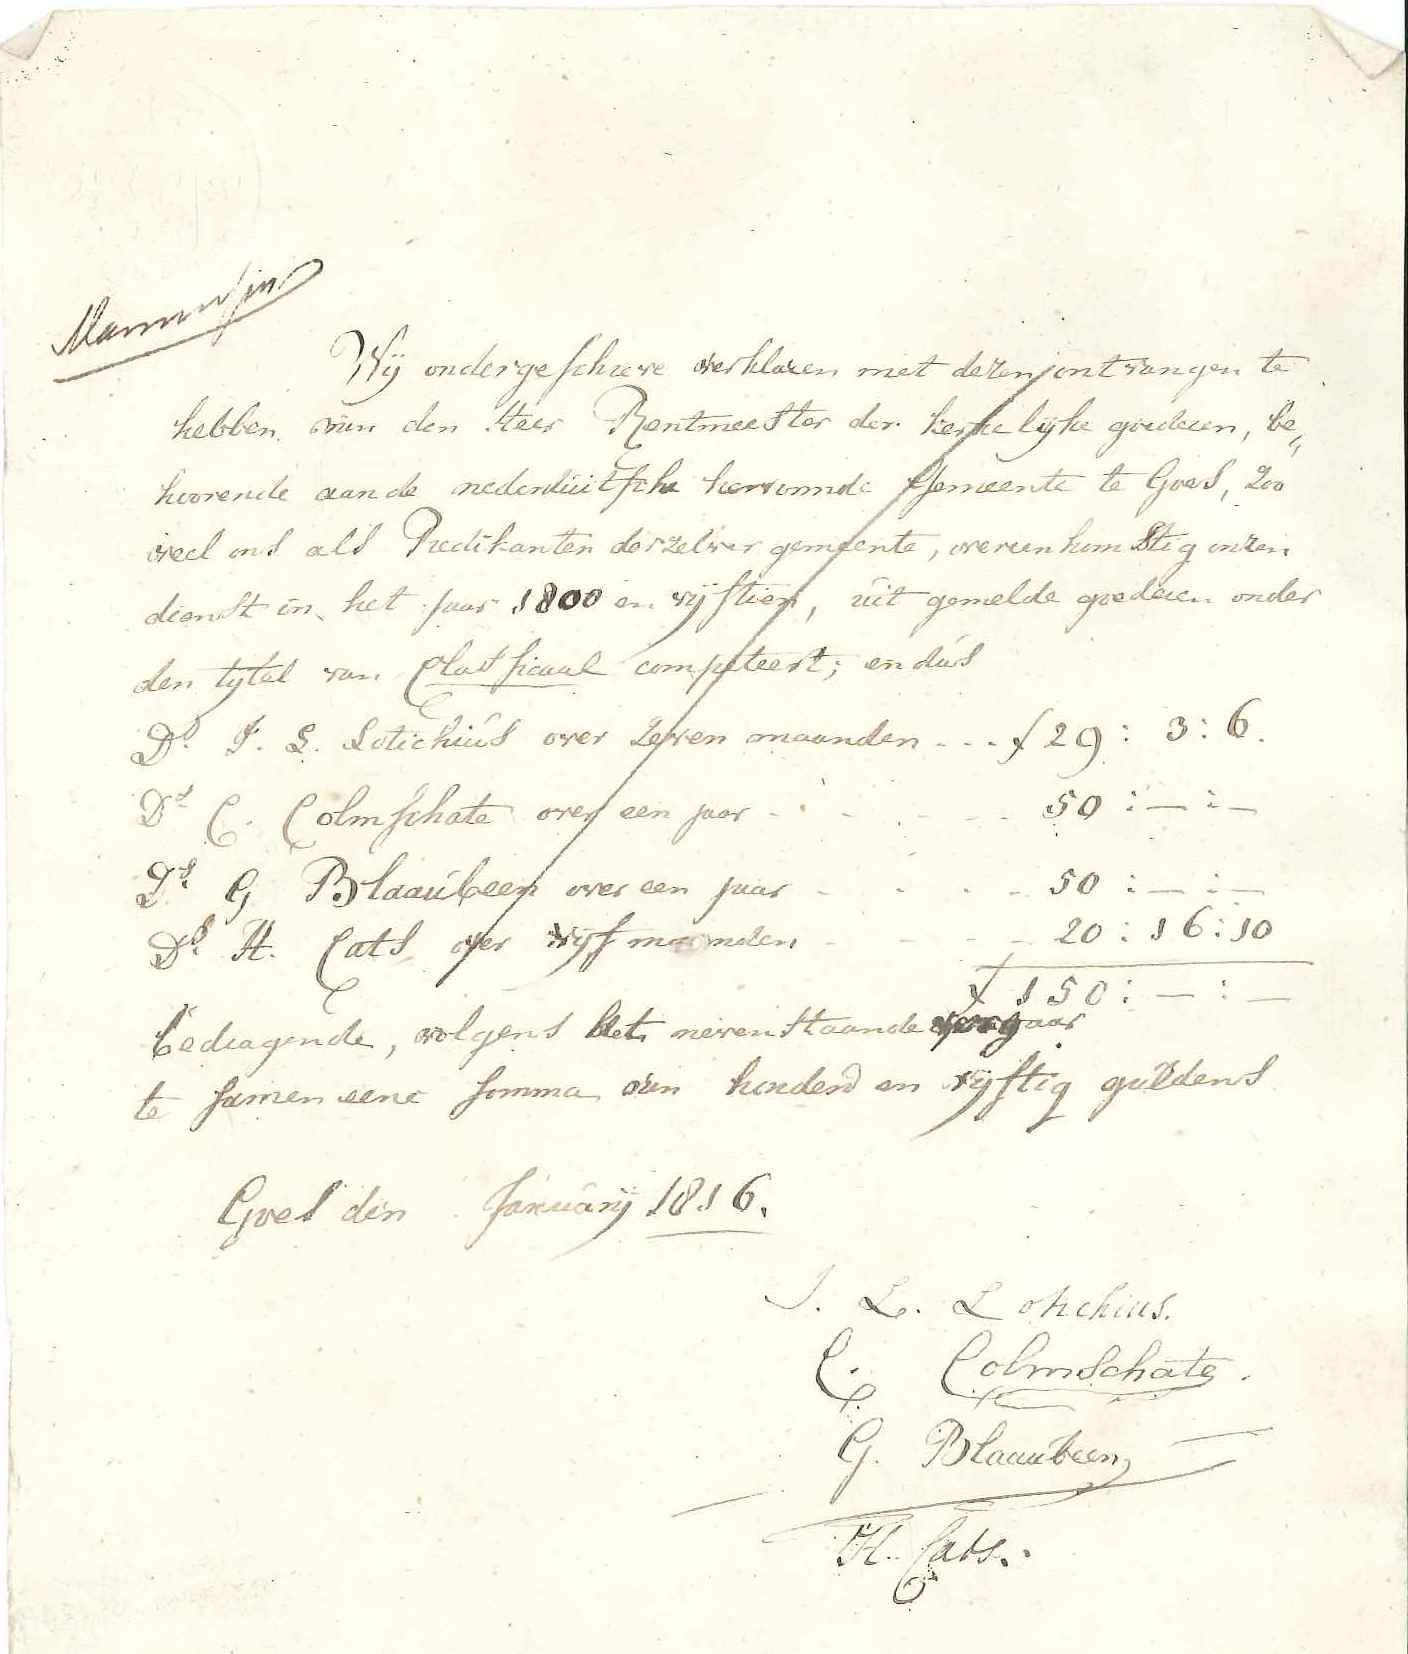 Wij ondergeschreve verklaren met dezen ontvangen te
hebben van den Heer Rentmeester der kerkelijke goederen, be„
hoorende aan de nederduitsche hervormde Gemeente te Goes, zoo
veel ons als Predikanten derzelver gemeente, overeenkomstig onzen
dienst in het jaar 1800 en vijftien, uit gemelde goederen onder
den tytel van Classicaal competeert; en dus
Ds. J. L. Lotichius over zeven maanden ... ƒ 29 : 3 : 6.
Ds C. Colmschate over een jaar - - - - - - 50 : — : —
Ds. G Blaaubeen over een jaar - - - - - 50 : — : —
Ds. H. Cats over vijf maanden - - - - 20 : 16 : 10
ƒ 150 : — : —
bedragende, volgens het nevenstaande
te samen eene somma van honderd en vijftig guldens
Goes den January 1816.
J. L. Lotichius.
C. Colmschate.
G. Blaaubeen
H. Cats.